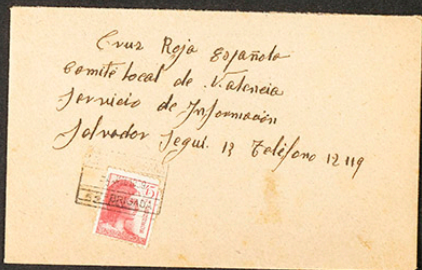 Cruz Roja Española
Comité Local de Valencia
Servicio de Información
Salvador Seguí. 13 Teléfono 12119
15
BRIGADA